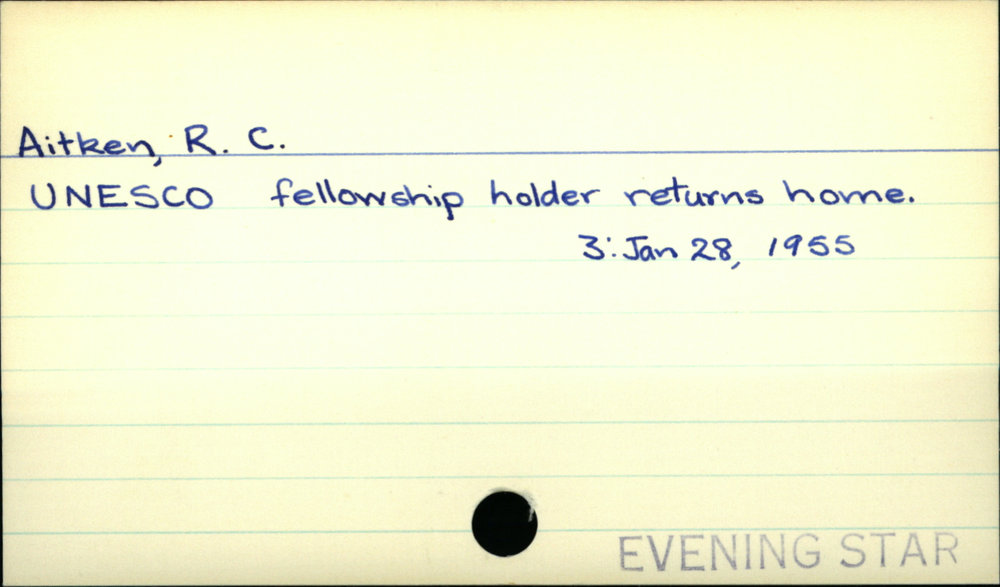 Aitken, R. C.
UNESCO fellowship holder returns home.
3: Jan 28, 1955
EVENING STAR